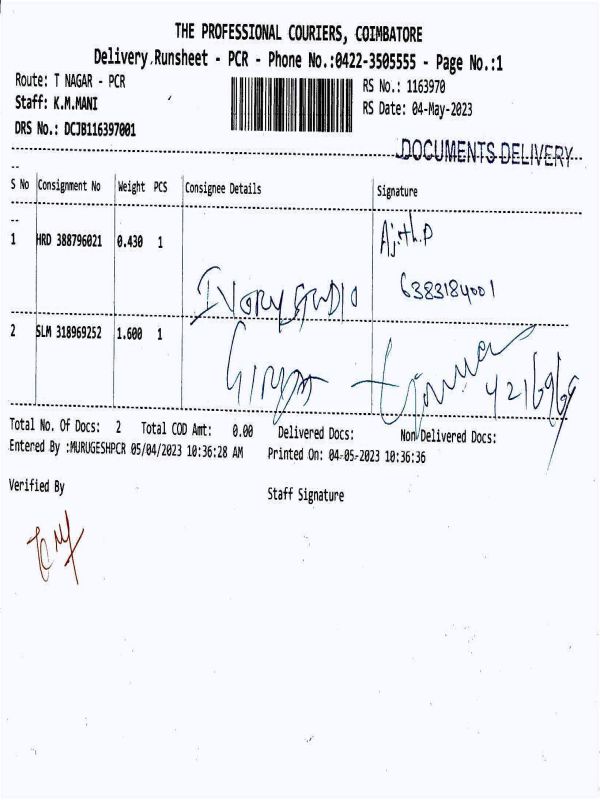 THE PROFESSIONAL COURIERS, COIMBATORE
Delivery Runsheet - PCR - Phone No.:0422-3505555 - Page No.:1
Route: T NAGAR - PCR
RS No.: 1163970
Staff: K.M.MANI
RS Date: 04-May-2023
DRS No.: DCJB116397001
DOCUMENTS DELIVERY
S No Consignment No Weight PCS Consignee Details Signature
1 HRD 388796021 0.430 1 Ajith.P
6383184001
IVORY STUDIO
2 SLM 318969252 1.600 1
Total No. Of Docs: 2 Total COD Amt: 0.00 Delivered Docs: Non Delivered Docs:
Entered By :MURUGESHPCR 05/04/2023 10:36:28 AM Printed On: 04-05-2023 10:36:36
Verified By Staff Signature